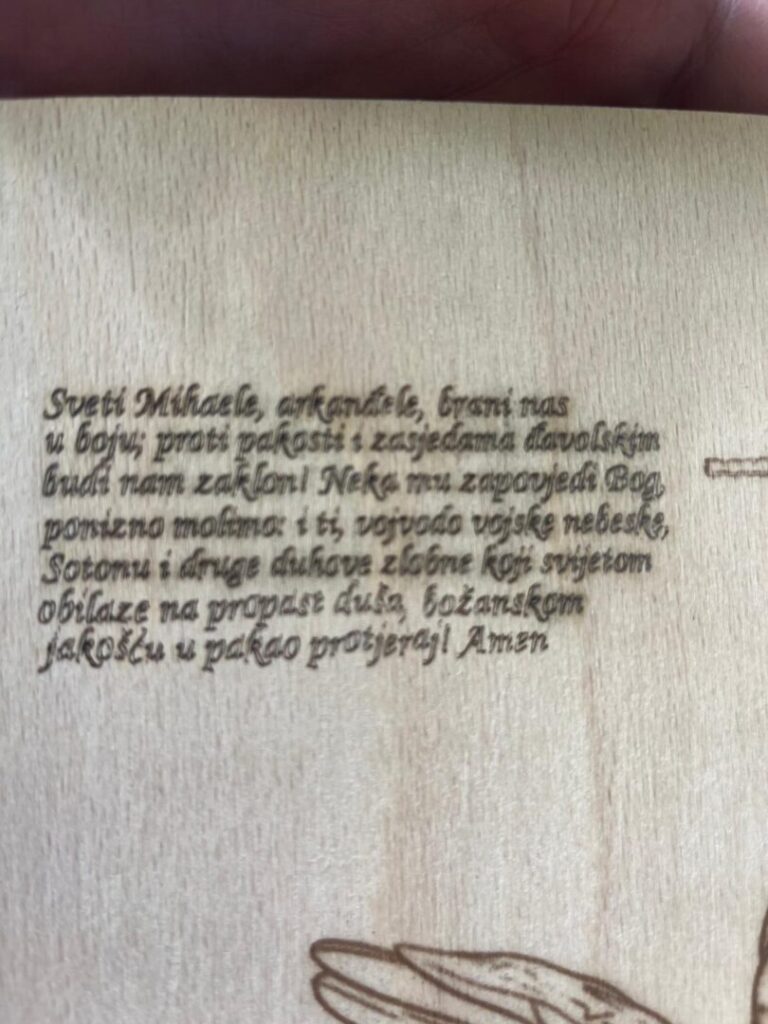 Sveti Mihaele, arkanđele, brani nas
u boju; proti pakosti i zasjedama đavolskim
budi nam zaklon! Neka mu zapovjedi Bog,
ponizno molimo: i ti, vojvodo vojske nebeske,
Sotonu i druge duhove zlobne koji svijetom
obilaze na propast duša, božanskom
jakošću u pakao protjeraj! Amen